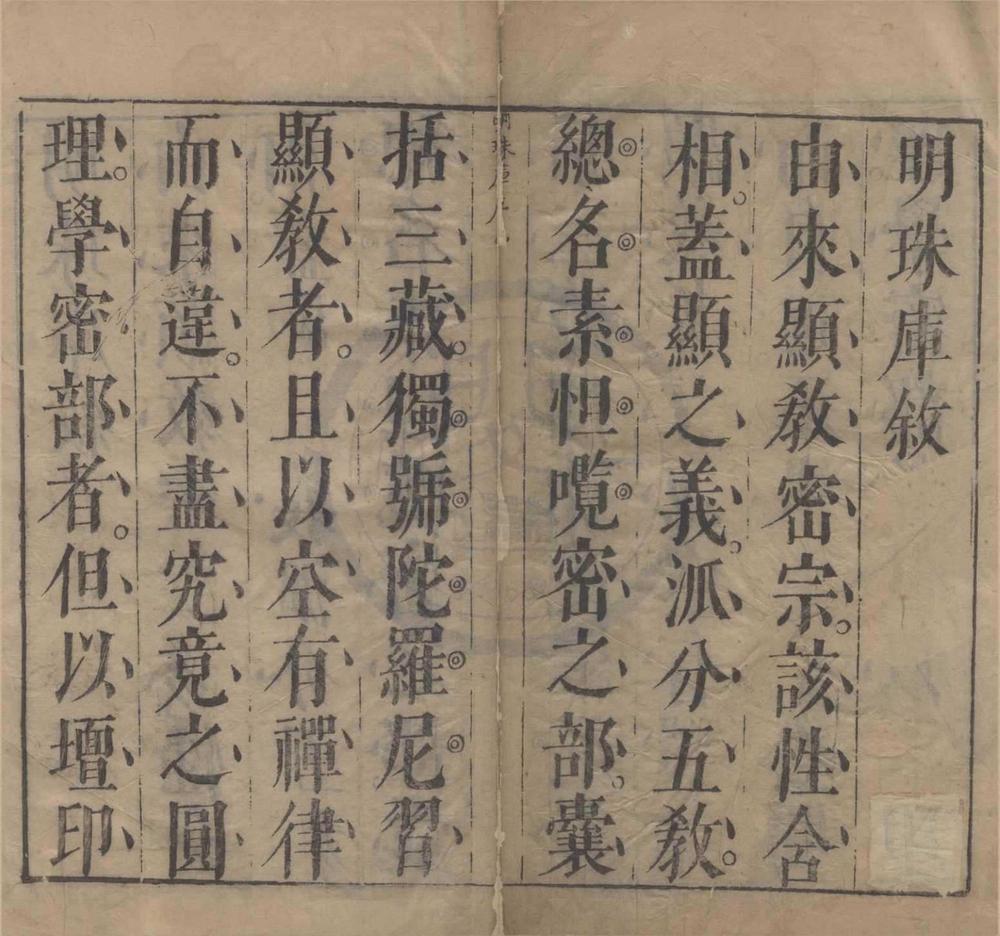 明珠庫敘
由來顯教密宗。該性含
相。蓋顯之義。派分五教。
總名素怛囕密之部。囊
括三藏。獨號陀羅尼習
顯教者。且以空有禪律
而自違。不盡究竟之圓
理。學密部者。但以壇印
明珠庫